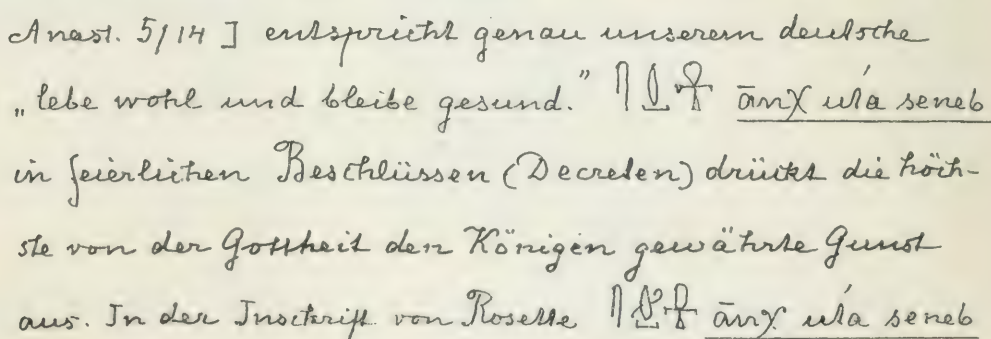 Anast. 5/14] entspricht genau unserem deutsche
„lebe wohl und bleibe gesund.” 𓋴𓍑𓋹 ānχ uťa seneb
in feierlichen Beschlüssen (Decreten) drückt die höch-
ste von der Gottheit den Königen gewährte Gunst
aus. In der Inschrift von Rosette 𓋴𓍑𓋹 ānχ uťa seneb